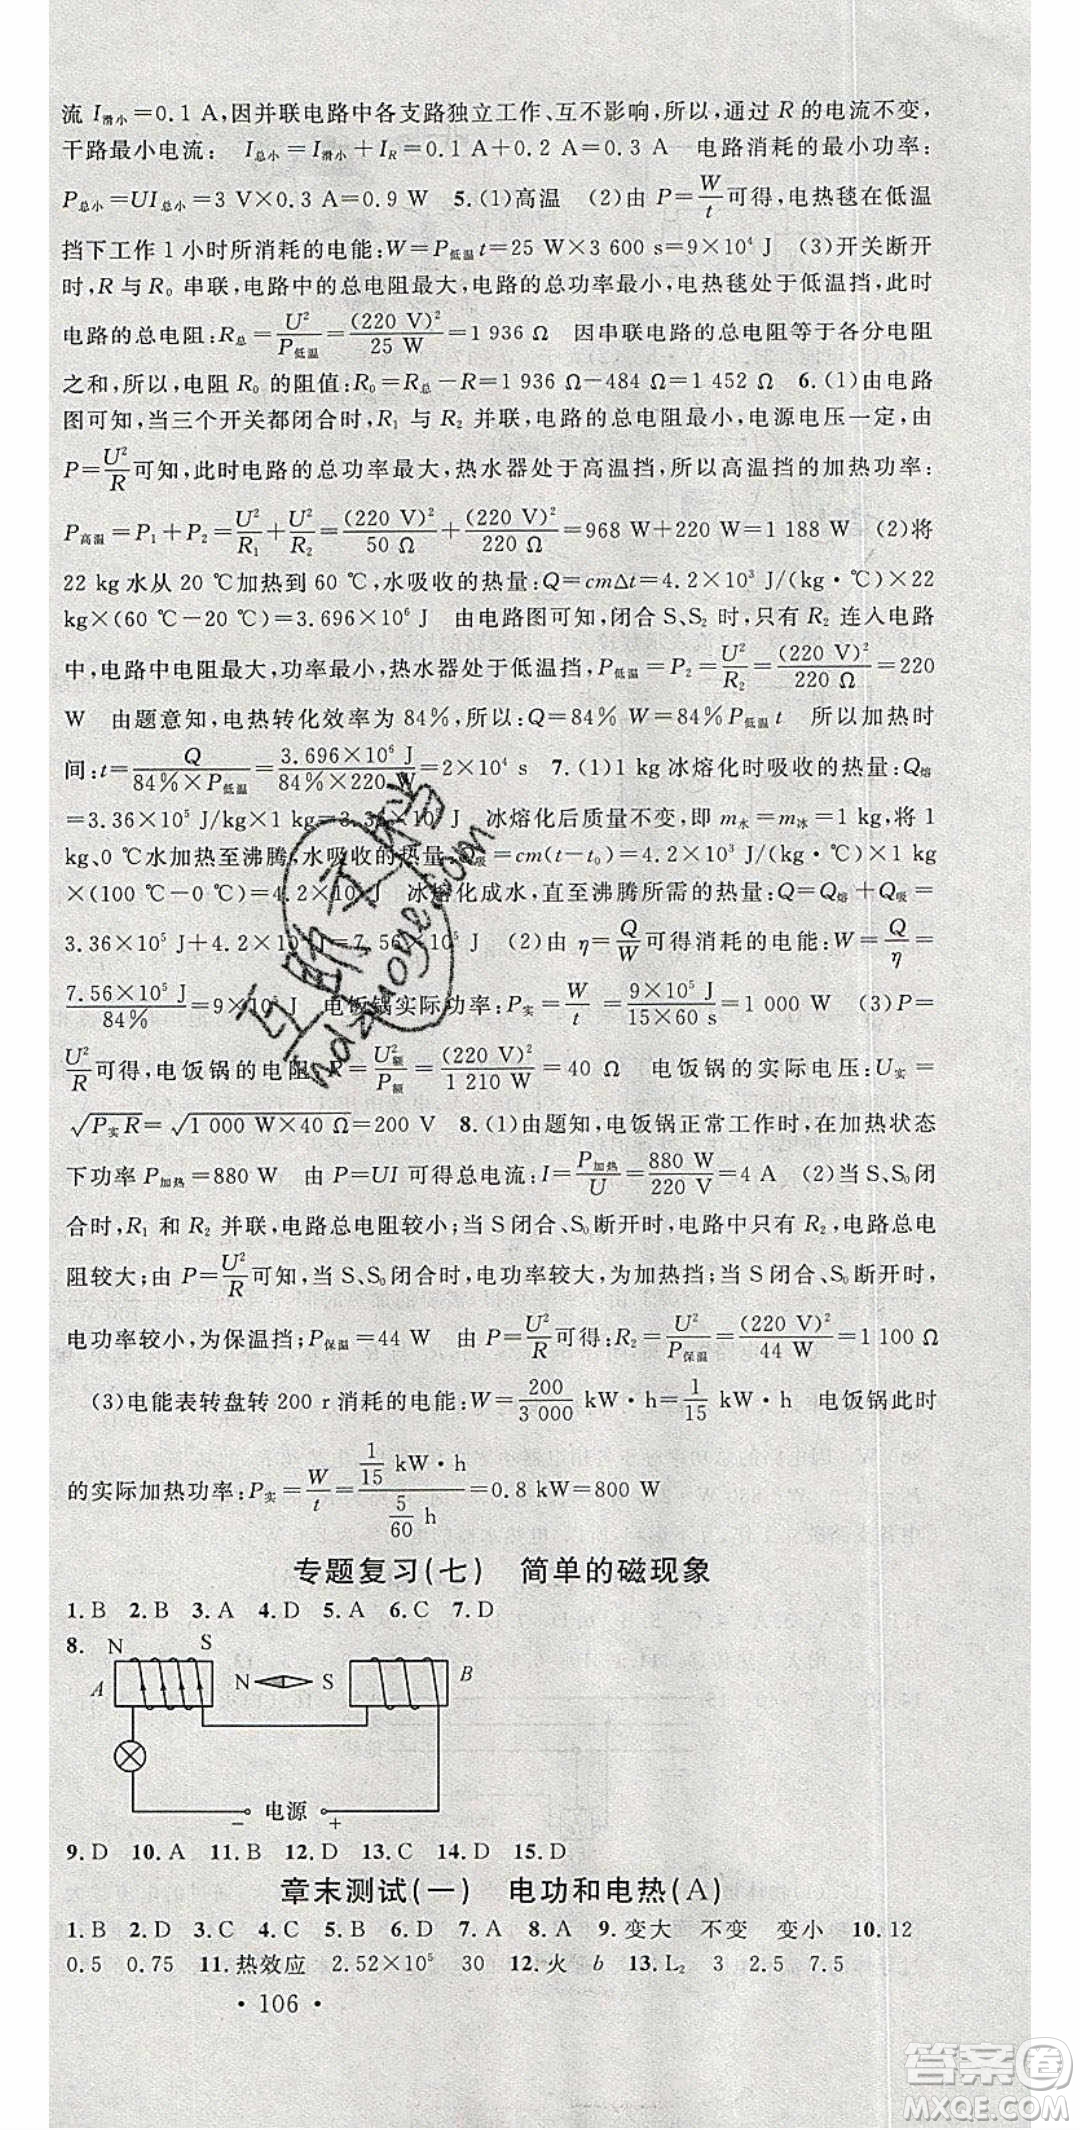 流 I滑小=0.1 A,因并联电路中各支路独立工作、互不影响,所以,通过 R 的电流不变,
干路最小电流: I总小=I滑小+I_R=0.1 A+0.2 A=0.3 A 电路消耗的最小功率:
P总小=UI总小=3 V×0.3 A=0.9 W 5.(1)高温 (2)由 P=W/t可得,电热毯在低温
挡下工作 1 小时所消耗的电能:W=P低温t=25 W×3 600 s=9×10⁴ J (3)开关断开
时,R 与 R₀ 串联,电路中的总电阻最大,电路的总功率最小,电热毯处于低温挡,此时
电路的总电阻:R总=U²/P低温=(220 V)²/25 W=1 936 Ω 因串联电路的总电阻等于各分电阻
之和,所以,电阻 R₀ 的阻值:R₀=R总-R=1 936 Ω-484 Ω=1 452 Ω 6.(1)由电路
图可知,当三个开关都闭合时,R₁ 与 R₂ 并联,电路的总电阻最小,电源电压一定,由
P=U²/R可知,此时电路的总功率最大,热水器处于高温挡,所以高温挡的加热功率:
P高温=P₁+P₂=U²/R₁+U²/R₂=(220 V)²/50 Ω+(220 V)²/220 Ω=968 W+220 W=1 188 W (2)将
22 kg水从 20 ℃加热到 60 ℃,水吸收的热量:Q=cmΔt=4.2×10³ J/(kg·℃)×22
kg×(60 ℃-20 ℃)=3.696×10⁶ J 由电路图可知,闭合 S、S₂ 时,只有 R₂ 连入电路
中,电路中电阻最大,功率最小,热水器处于低温挡,P低温=P₂=U²/R₂=(220 V)²/220 Ω=220
W 由题意知,电热转化效率为 84%,所以:Q=84% W=84%P低温t 所以加热时
间:t=Q/84%×P低温=3.696×10⁶ J/84%×220 W=2×10⁴ s 7.(1)1 kg冰熔化时吸收的热量:Q熔
=3.36×10⁵ J/kg×1 kg=3.36×10⁵ J 冰熔化后质量不变,即 m水=m冰=1 kg,将 1
kg、0 ℃水加热至沸腾,水吸收的热量:Q吸=cm(t-t₀)=4.2×10³ J/(kg·℃)×1 kg
×(100 ℃-0 ℃)=4.2×10⁵ J 冰熔化成水,直至沸腾所需的热量:Q=Q熔+Q吸=
3.36×10⁵ J+4.2×10⁵ J=7.56×10⁵ J (2)由 η=Q/W可得消耗的电能:W=Q/η=
7.56×10⁵ J/84%=9×10⁵ J 电饭锅实际功率:P实=W/t=9×10⁵ J/15×60 s=1 000 W (3)P=
U²/R可得,电饭锅的电阻:R=U额²/P额=(220 V)²/1 210 W=40 Ω 电饭锅的实际电压:U实=
√P实R=√1 000 W×40 Ω=200 V 8.(1)由题知,电饭锅正常工作时,在加热状态
下功率 P加热=880 W 由 P=UI 可得总电流:I=P加热/U=880 W/220 V=4 A (2)当 S、S₀闭
合时,R₁ 和 R₂ 并联,电路总电阻较小;当 S闭合、S₀断开时,电路中只有 R₂,电路总电
阻较大;由 P=U²/R可知,当 S、S₀闭合时,电功率较大,为加热挡;当 S闭合、S₀断开时,
电功率较小,为保温挡;P保温=44 W 由 P=U²/R可得:R₂=U²/P保温=(220 V)²/44 W=1 100 Ω
(3)电能表转盘转 200 r消耗的电能:W=200/3 000 kW·h=1/15 kW·h 电饭锅此时
的实际加热功率:P实=W/t=(1/15 kW·h)/(5/60 h)=0.8 kW=800 W
专题复习(七) 简单的磁现象
1. B 2. B 3. A 4. D 5. A 6. C 7. D
8.
N S
A N S B
- 电源 +
9. D 10. A 11. B 12. D 13. C 14. D 15. D
章末测试(一) 电功和电热(A)
1. B 2. D 3. C 4. C 5. B 6. D 7. A 8. A 9. 变大 不变 变小 10. 12
0.5 0.75 11. 热效应 2.52×10⁵ 30 12. 火 b 13. L₂ 3 2.5 7.5
· 106 ·
答案圈
MXQE.COM